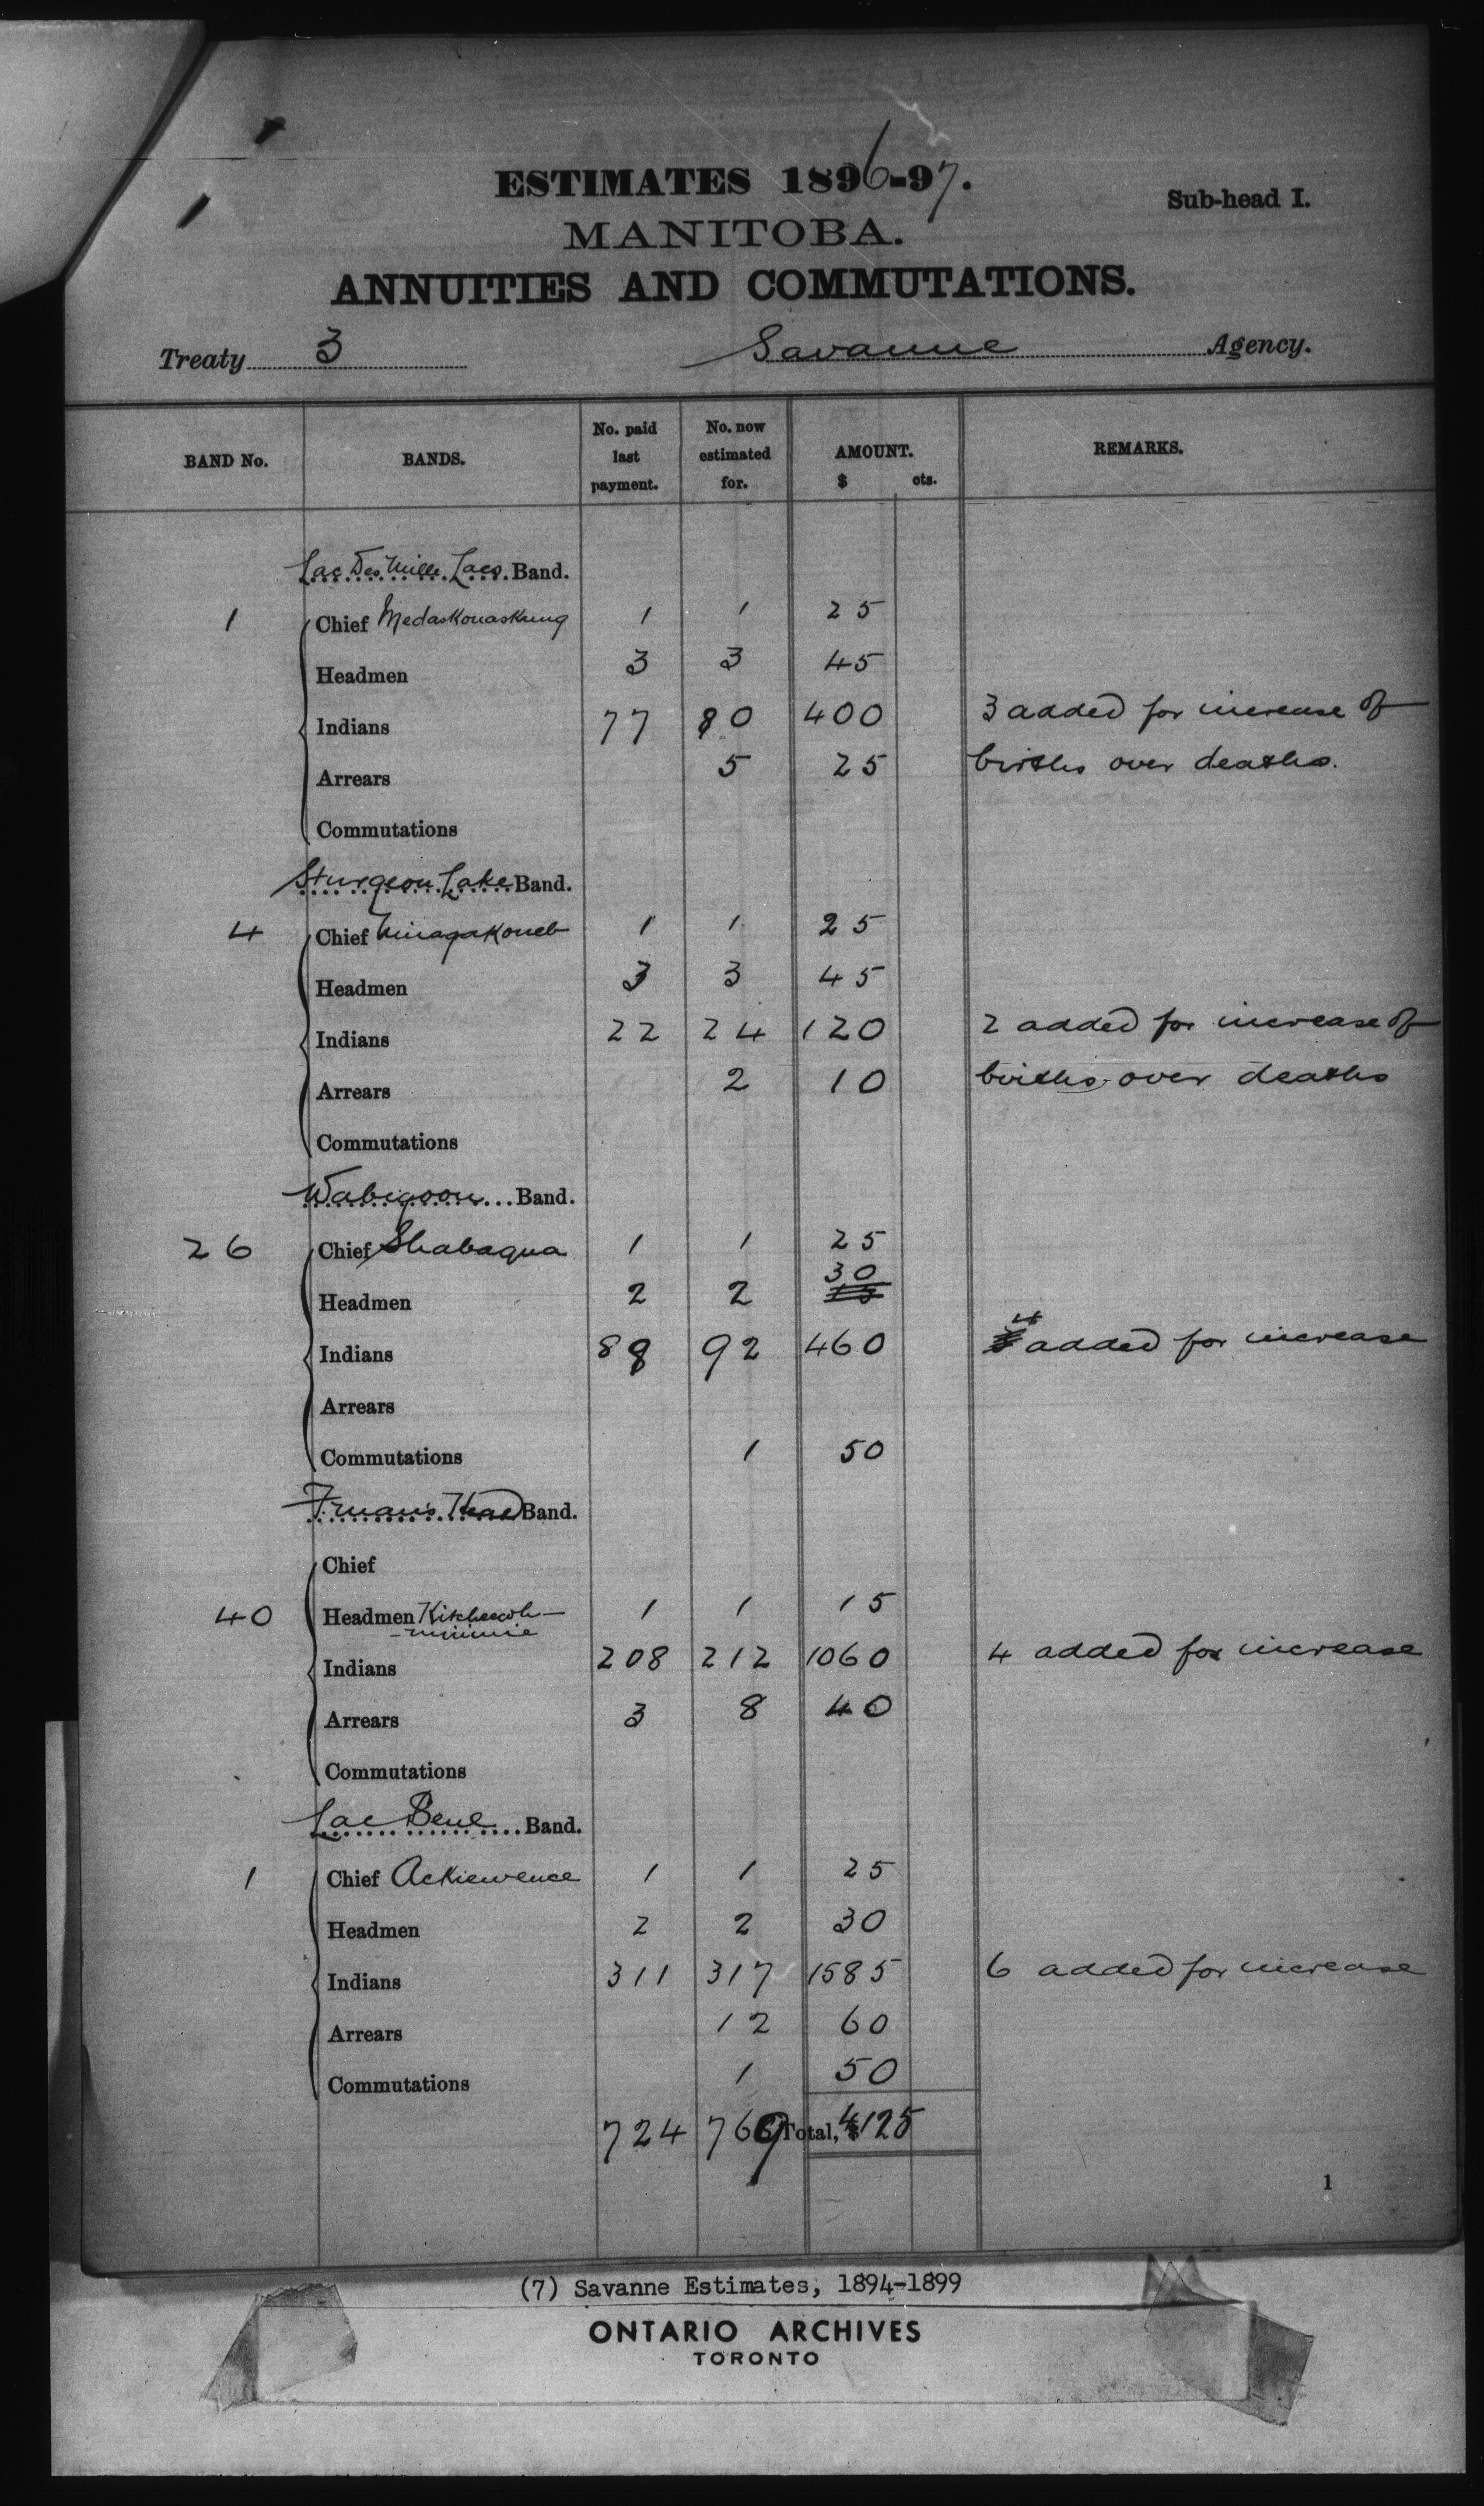 ESTIMATES 1896-97.
Sub-head I.
MANITOBA.
ANNUITIES AND COMMUTATIONS.
Treaty 3 Savanne Agency.
BAND No. BANDS. No. paid last payment. No. now estimated for. AMOUNT. $ cts. REMARKS.
Lac Des Mille Lacs Band.
1 Chief Medaskonaskung 1 1 25
Headmen 3 3 45
Indians 77 80 400 3 added for increase of
Arrears 5 25 births over deaths.
Commutations
Sturgeon Lake Band.
4 Chief 1 1 25
Headmen 3 3 45
Indians 22 24 120 2 added for increase of
Arrears 2 10 births over deaths
Commutations
Wabigoon Band.
26 Chief Shabaqua 1 1 25
Headmen 2 2 30
Indians 88 92 460 4 added for increase
Arrears
Commutations 1 50
F.man's Head Band.
Chief
40 Headmen 1 1 15
Indians 208 212 1060 4 added for increase
Arrears 3 8 40
Commutations
Lac Seul Band.
1 Chief Ackiewence 1 1 25
Headmen 2 2 30
Indians 311 317 1585 6 added for increase
Arrears 12 60
Commutations 1 50
724 769 Total, $ 4125
1
(7) Savanne Estimates, 1894-1899
ONTARIO ARCHIVES
TORONTO